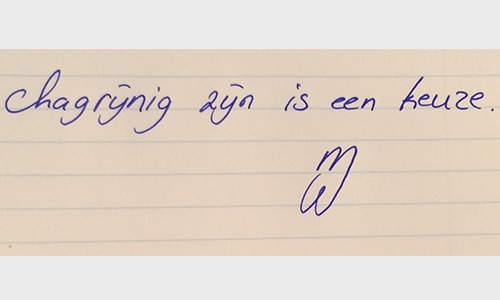 Chagrijnig zijn is een keuze.
MW